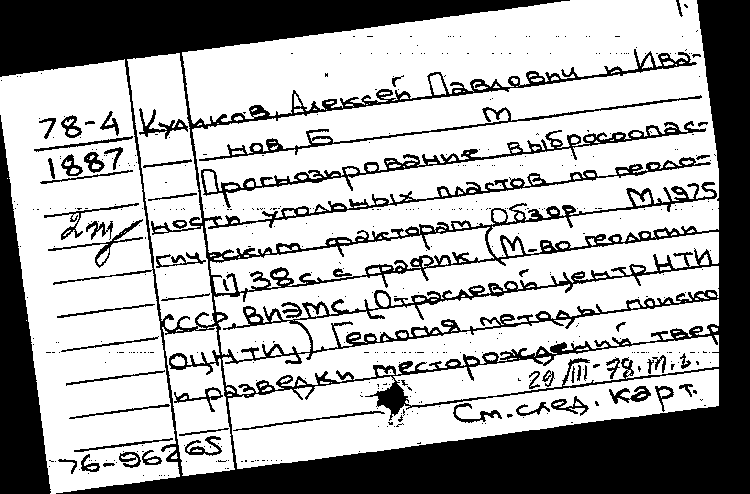 1.
78-4 Куликов, Алексей Павлович и Ива-
1887 нов, Б М
Прогнозирование выбросоопас-
2т ности угольных пластов по геоло-
гическим факторам. Обзор. М., 1975
[1], 38 с. с график. (М-во геологии
СССР. ВИЭМС. [Отраслевой центр НТИ
ОЦНТИ]). Геология, методы поиско
и разведки месторождений твер
29/III-78. т. в.
См. след. карт.
76-96265